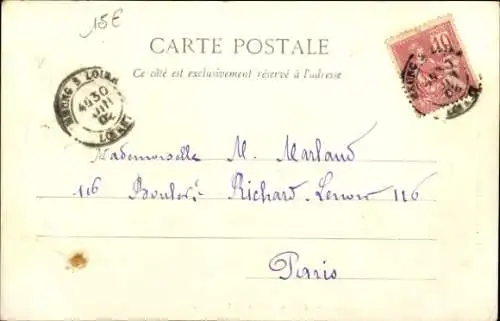 15€
CARTE POSTALE
Ce côté est exclusivement réservé à l'adresse
10
& LOIRE
30
JUIN
04
LOIRET
Mademoiselle M. Marland
116 Boulevd Richard-Lenoir 116
Paris